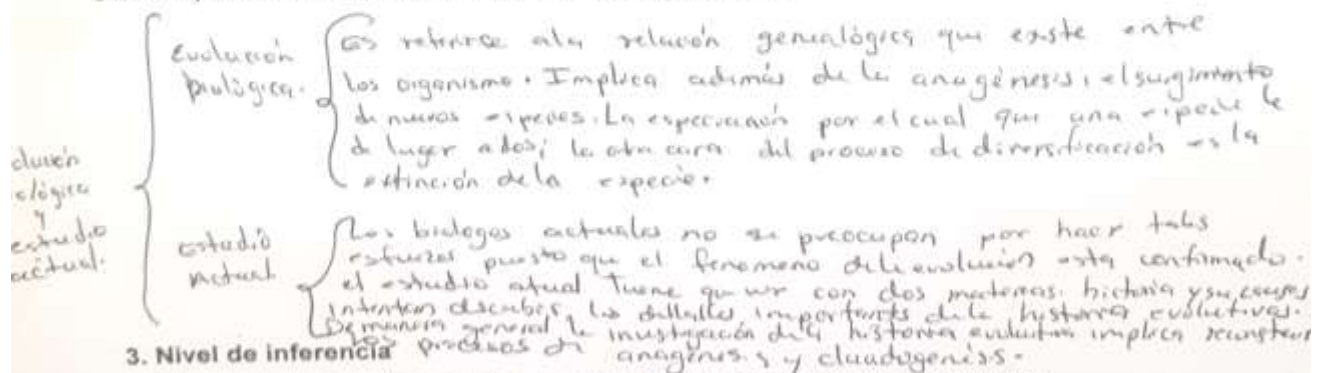 Evolución biológica.
es referirse ala relación genealógica que existe entre
los organismo. Implica además de la anagénesis, el surgimiento
de nuevas especies. La especiación por el cual que una especie le
da lugar a dos; la otra cara del proceso de diversificación es la
extinción de la especie.
dución
ológica
y
estudio
actual.
estudio
actual
Los biologos actuales no se preocupan por hacer tales
esfuerzos puesto que el fenomeno de la evolución esta confirmado.
el estudio atual tiene que ver con dos materias. historia y su causas
intentan describir los detalles importantes de la historia evolutivas.
De manera general la investigación de la historia evolutiva implica reconstruir
los procesos de anagénesis y cladogeniss.
3. Nivel de inferencia